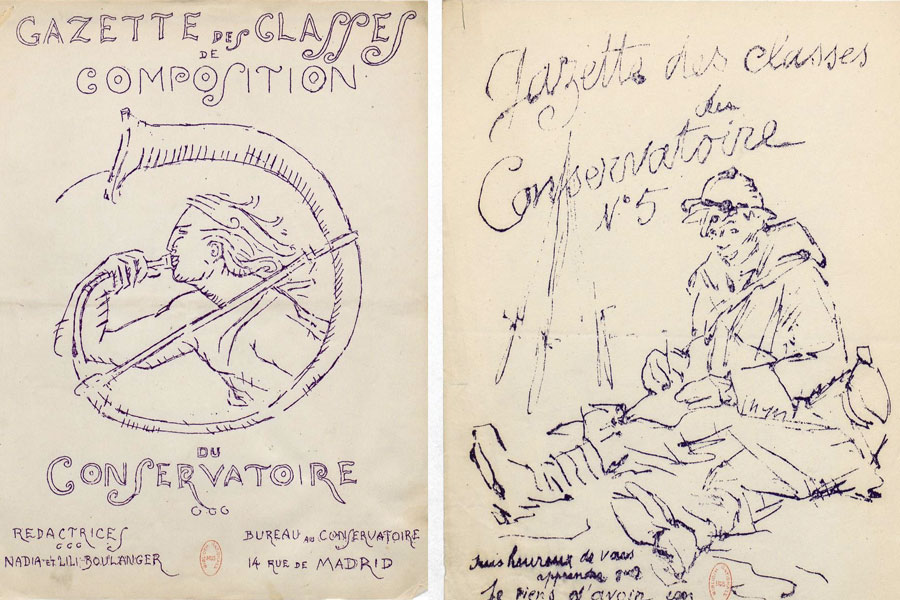 GAZETTE DES CLASSES
DE
COMPOSITION
DU
CONSERVATOIRE
REDACTRICES
NADIA et LILI BOULANGER
BUREAU AU CONSERVATOIRE
14 RUE DE MADRID
Gazette des classes
du
Conservatoire
N° 5
suis heureux de vous
apprendre que
Je viens d'avoir son